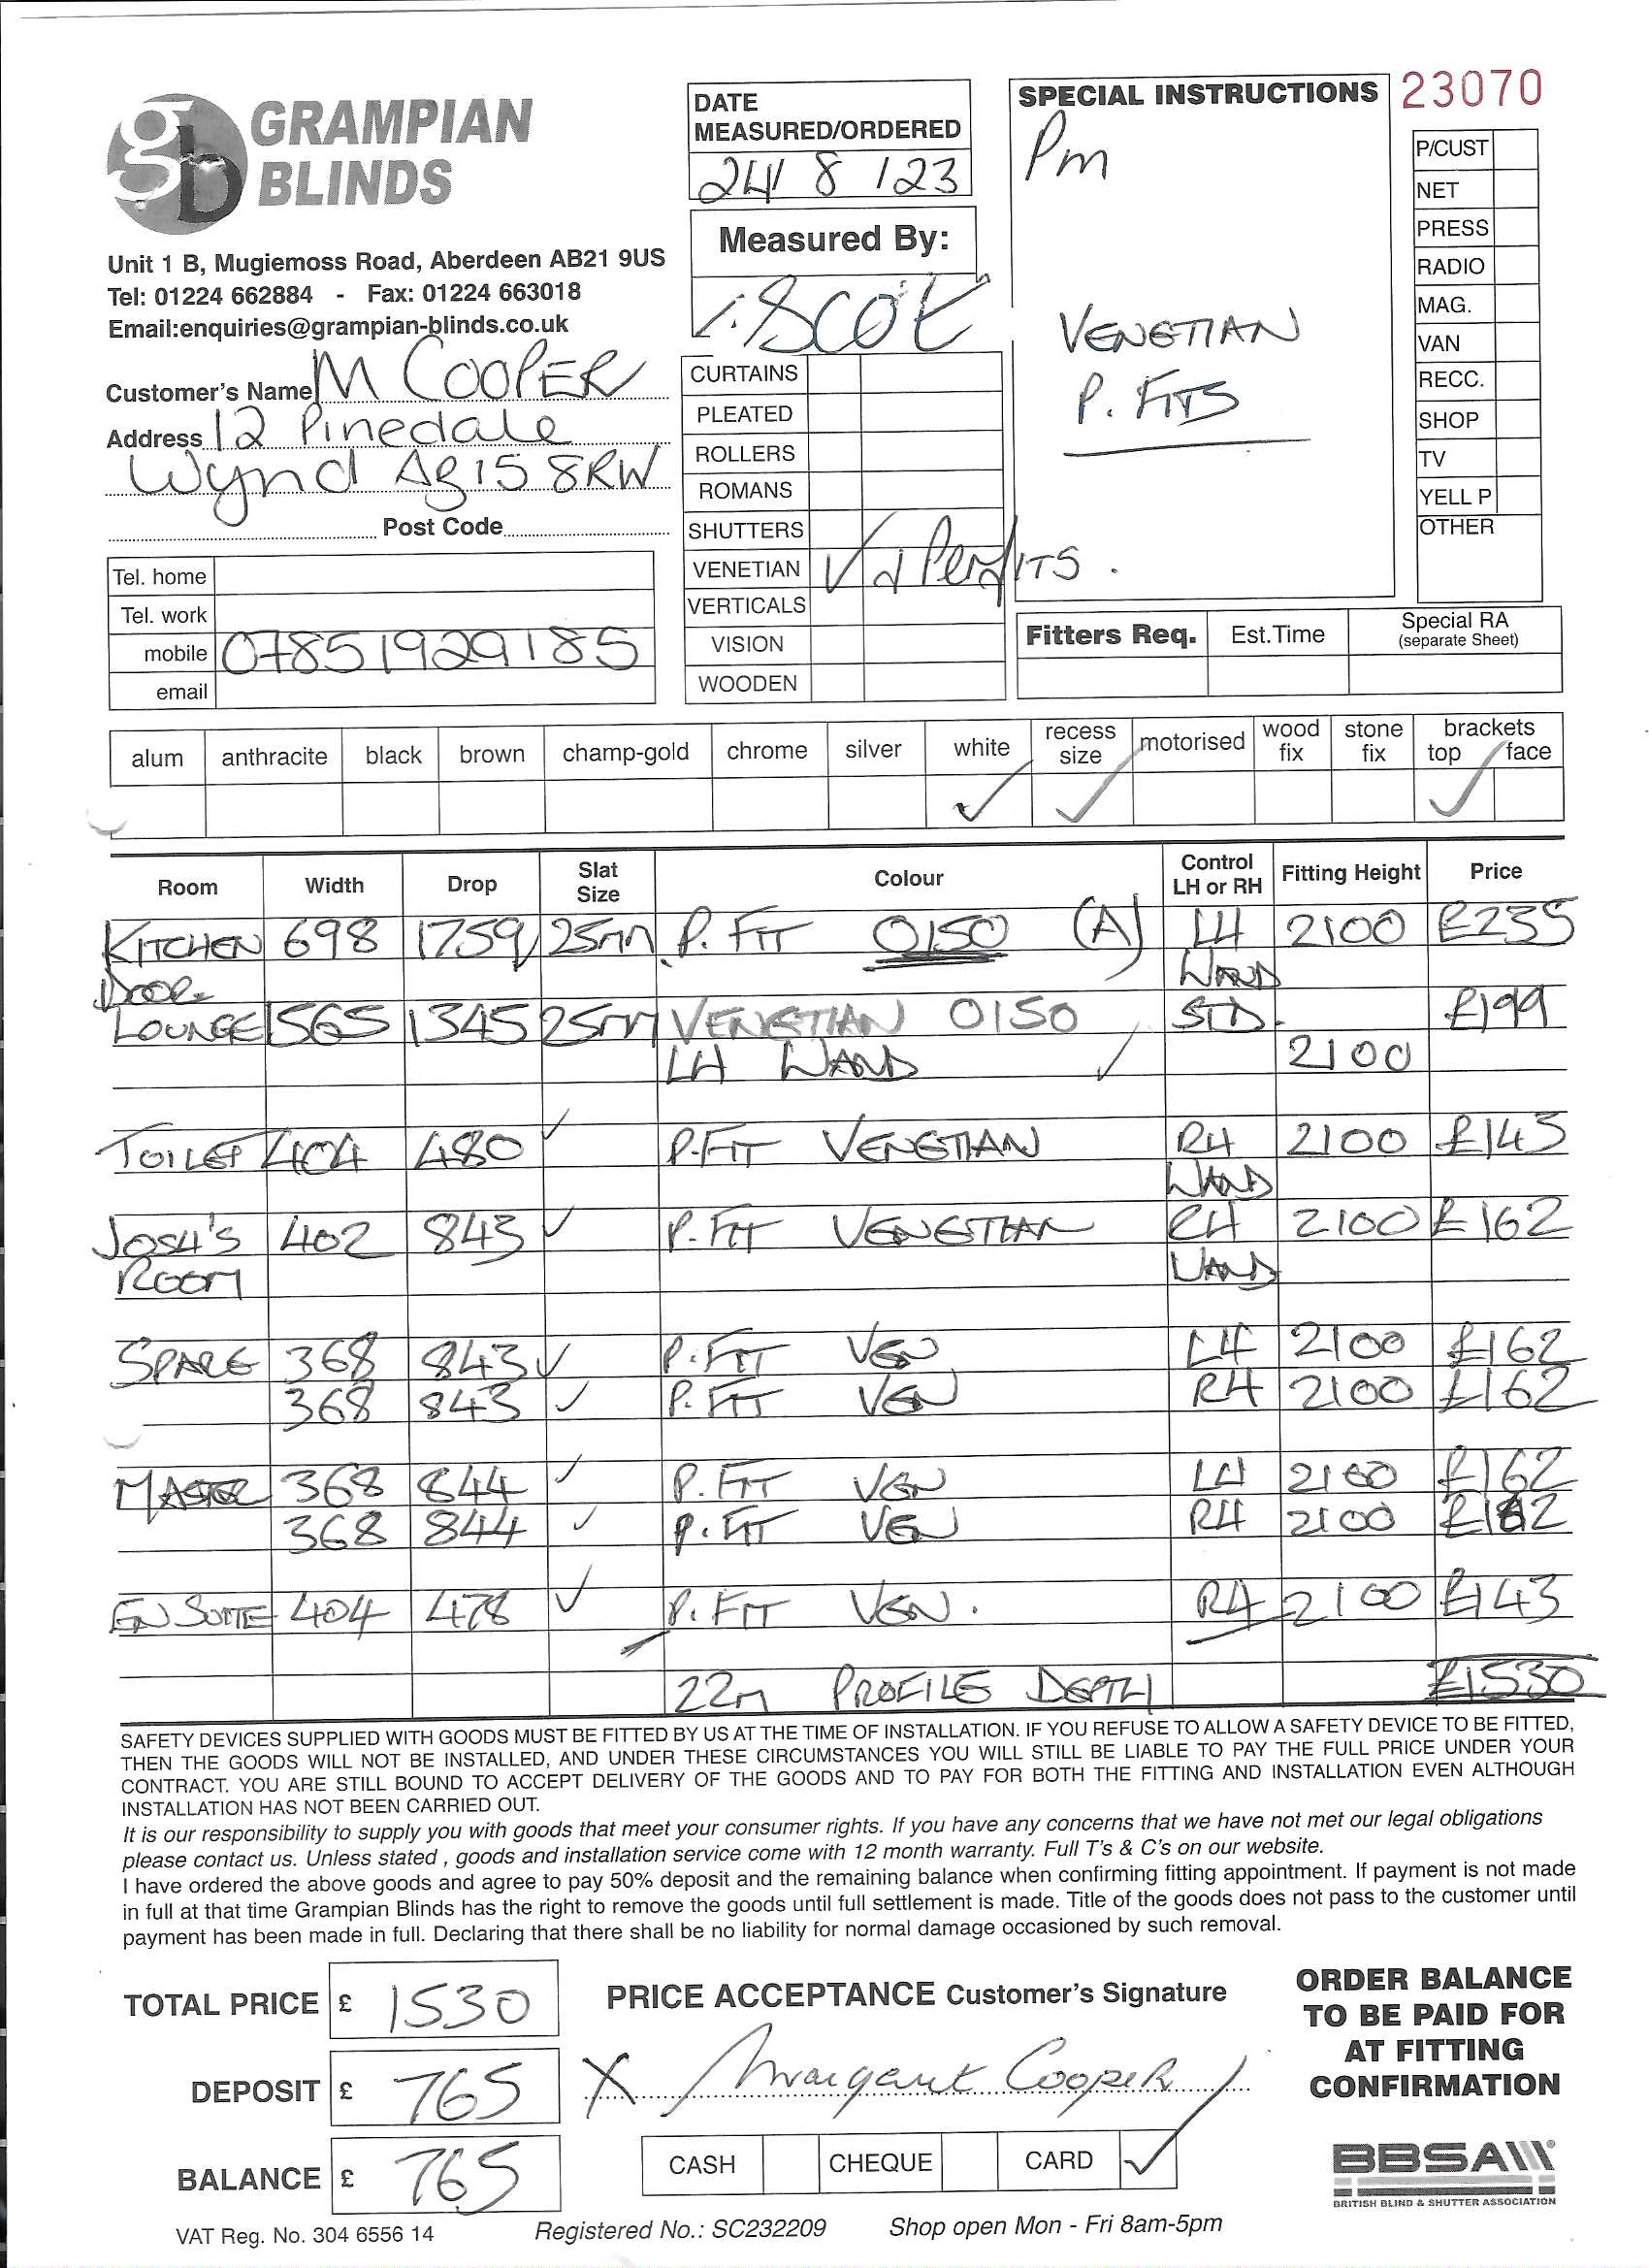 23070
GRAMPIAN
BLINDS
Unit 1 B, Mugiemoss Road, Aberdeen AB21 9US
Tel: 01224 662884 - Fax: 01224 663018
Email:enquiries@grampian-blinds.co.uk
Customer's Name M COOPER
Address 12 Pinedale
Wynd AB15 8RW
Post Code
Tel. home
Tel. work
mobile 07851929185
email
DATE
MEASURED/ORDERED
24/8/23
Measured By:
SCOT
CURTAINS
PLEATED
ROLLERS
ROMANS
SHUTTERS
VENETIAN ✓
VERTICALS
VISION
WOODEN
SPECIAL INSTRUCTIONS
Pm
VENETIAN
P. FITS
P/CUST
NET
PRESS
RADIO
MAG.
VAN
RECC.
SHOP
TV
YELL P
OTHER
Fitters Req. Est.Time Special RA
(separate Sheet)
alum anthracite black brown champ-gold chrome silver white recess size motorised wood fix stone fix brackets top face
✓ ✓ ✓
Room Width Drop Slat Size Colour Control LH or RH Fitting Height Price
KITCHEN 698 1759 25mm P. FIT 0150 (A) LH 2100 £235
DOOR WAND
LOUNGE 1565 1345 25mm VENETIAN 0150 STD. £199
LH WAND ✓ 2100
TOILET 404 480 ✓ P.FIT VENETIAN RH 2100 £143
WAND
JOSH'S 402 843 ✓ P.FIT VENETIAN RH 2100 £162
ROOM WAND
SPARE 368 843 ✓ P.FIT VEN LH 2100 £162
368 843 ✓ P.FIT VEN RH 2100 £162
MASTER 368 844 ✓ P.FIT VEN LH 2100 £162
368 844 ✓ P.FIT VEN RH 2100 £162
EN SUITE 404 478 ✓ P.FIT VEN. RH 2100 £143
22m PROFILE DEPTH £1530
SAFETY DEVICES SUPPLIED WITH GOODS MUST BE FITTED BY US AT THE TIME OF INSTALLATION. IF YOU REFUSE TO ALLOW A SAFETY DEVICE TO BE FITTED,
THEN THE GOODS WILL NOT BE INSTALLED, AND UNDER THESE CIRCUMSTANCES YOU WILL STILL BE LIABLE TO PAY THE FULL PRICE UNDER YOUR
CONTRACT. YOU ARE STILL BOUND TO ACCEPT DELIVERY OF THE GOODS AND TO PAY FOR BOTH THE FITTING AND INSTALLATION EVEN ALTHOUGH
INSTALLATION HAS NOT BEEN CARRIED OUT.
It is our responsibility to supply you with goods that meet your consumer rights. If you have any concerns that we have not met our legal obligations
please contact us. Unless stated , goods and installation service come with 12 month warranty. Full T's & C's on our website.
I have ordered the above goods and agree to pay 50% deposit and the remaining balance when confirming fitting appointment. If payment is not made
in full at that time Grampian Blinds has the right to remove the goods until full settlement is made. Title of the goods does not pass to the customer until
payment has been made in full. Declaring that there shall be no liability for normal damage occasioned by such removal.
TOTAL PRICE £ 1530
DEPOSIT £ 765
BALANCE £ 765
PRICE ACCEPTANCE Customer's Signature
X Margaret Cooper
CASH CHEQUE CARD ✓
ORDER BALANCE
TO BE PAID FOR
AT FITTING
CONFIRMATION
BBSA
BRITISH BLIND & SHUTTER ASSOCIATION
VAT Reg. No. 304 6556 14 Registered No.: SC232209 Shop open Mon - Fri 8am-5pm